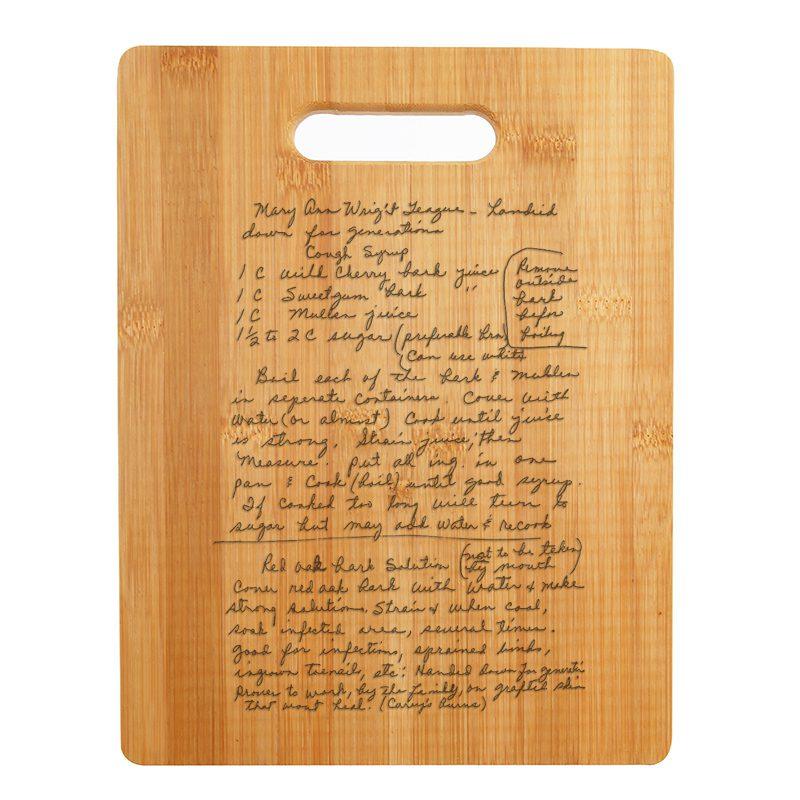 Mary Ann Wright Teague - handed
down for generations
Cough Syrup
1 C wild Cherry bark juice
1 C Sweetgum bark "
1 C Mullen juice
1 1/2 to 2 C sugar (preferable brn)
(Can use white
Remove
outside
bark
befor
boiling
Boil each of the bark & Mullen
in seperate containers. Cover with
water (or almost) Cook until juice
is strong. Strain juice, then
Measure. put all ing. in one
pan & Cook (boil) until good syrup.
If cooked too long will turn to
sugar but may add water & recook
Red oak bark Solution (not to be taken
by mouth)
Cover red oak bark with water & make
strong solution. Strain & when cool,
soak infected area, several times.
good for infections, sprained limbs,
ingrown toenails, etc. Handed down for generatin
Proven to work, by the family, on grafted skin
that wont heal. (Carey's Burns)